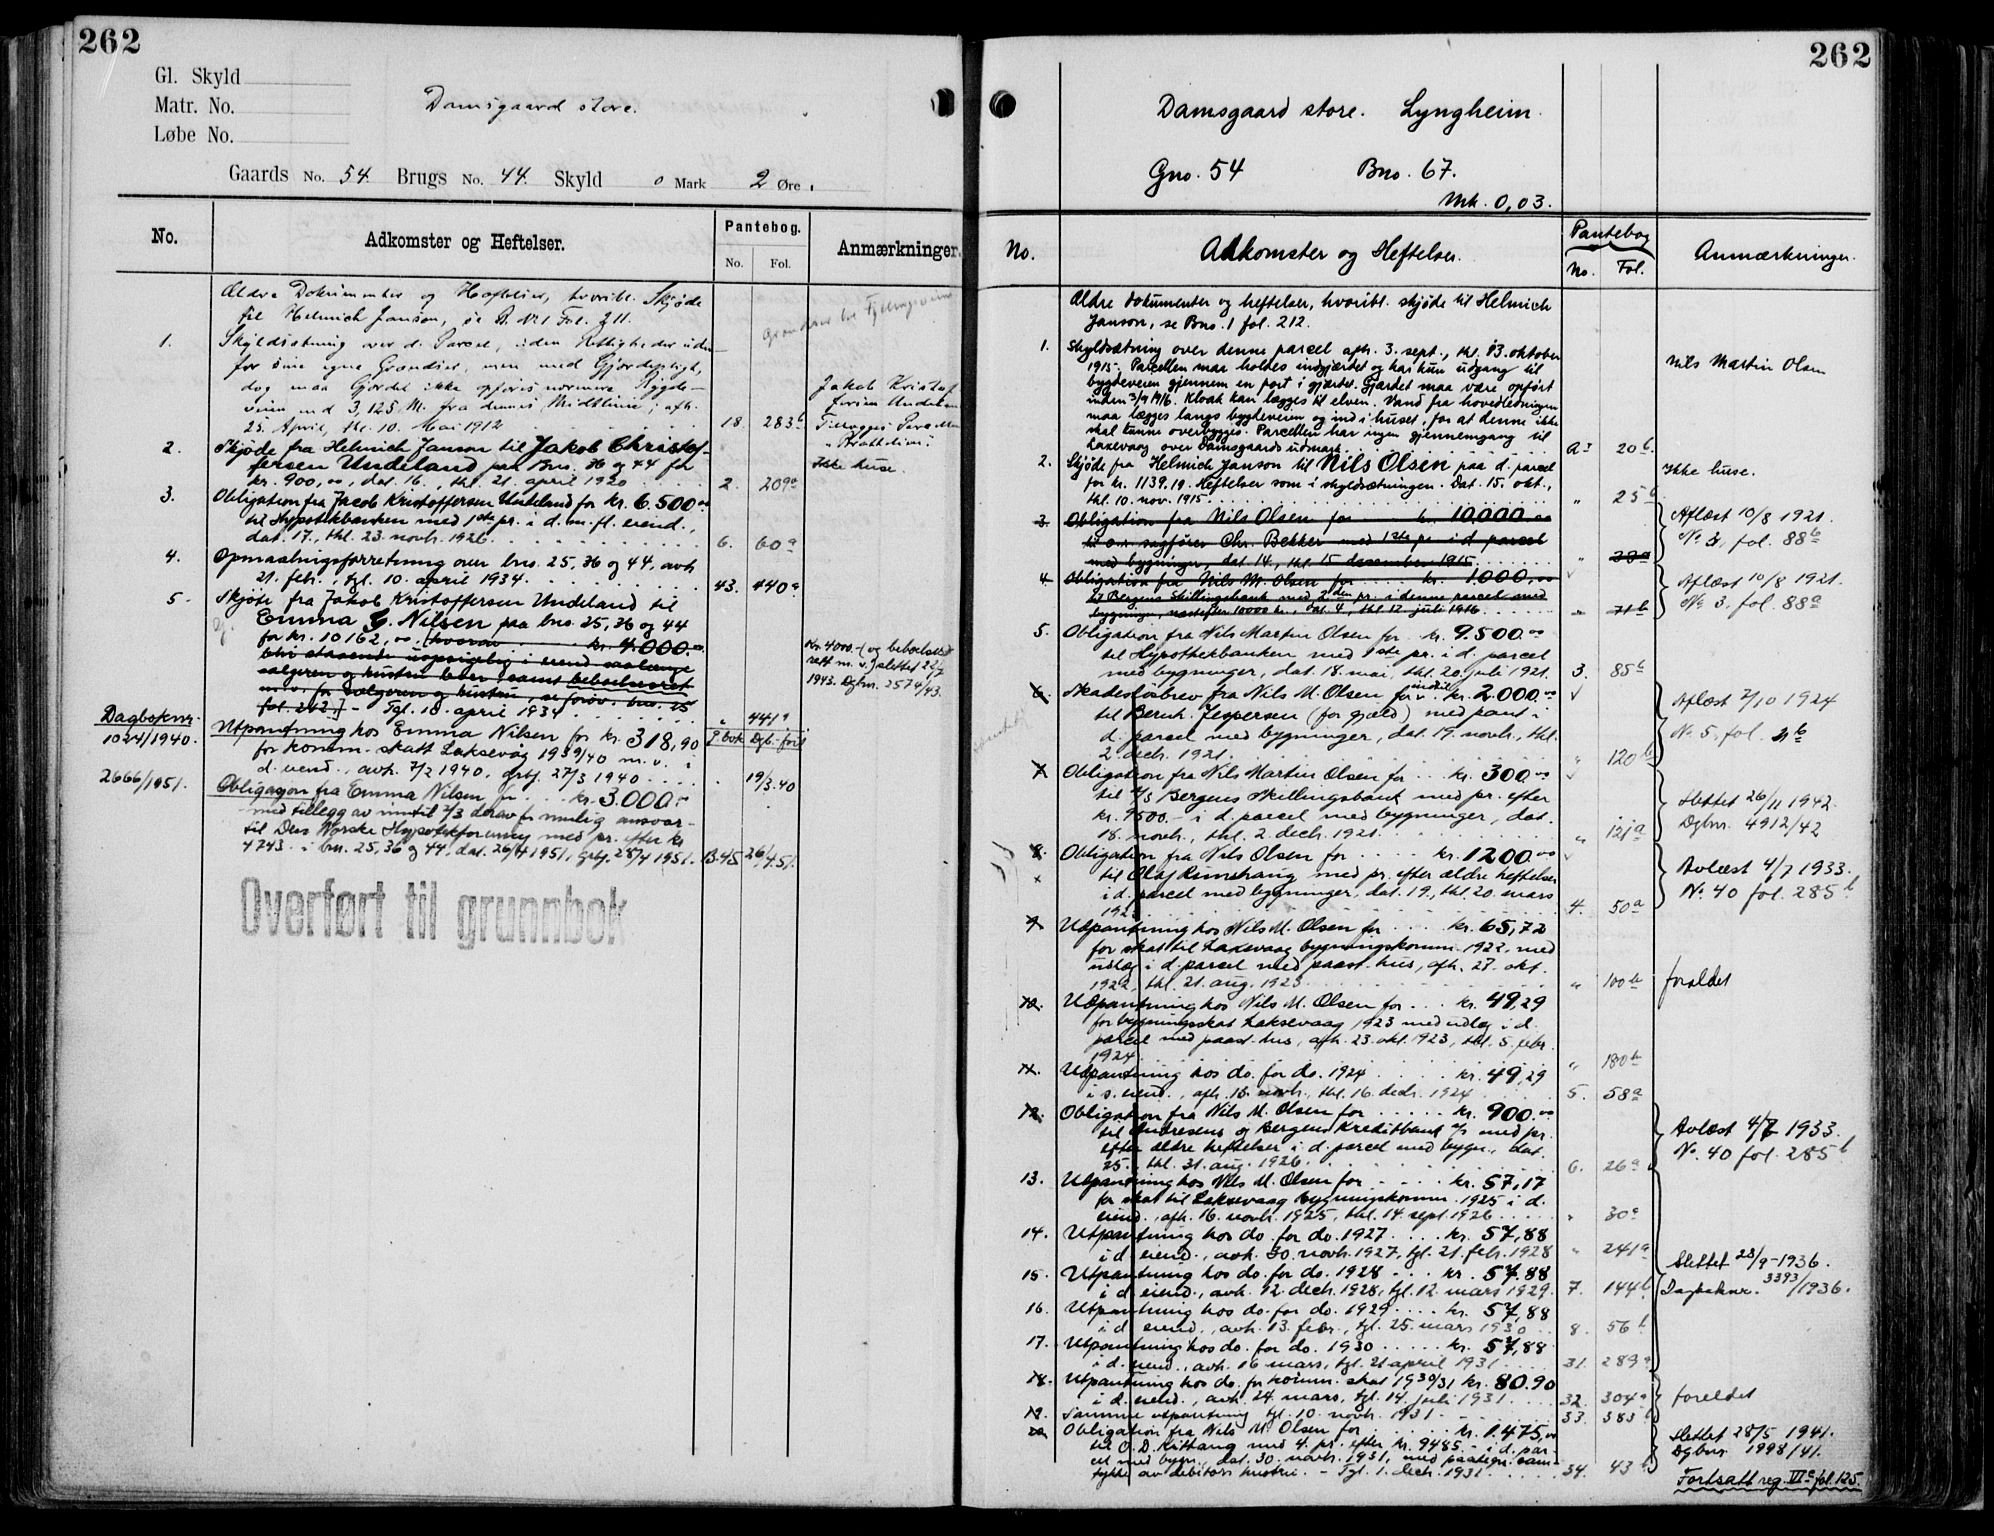 262
Gl. Skyld
Matr. No.
Løbe No.
Damsgaard store.
Gaards No. 54. Brugs No. 44. Skyld 0 Mark 2 Øre
No.
Adkomster og Heftelser.
Pantebog.
No. Fol.
Anmærkninger.
Ældre Dokumenter og Heftelser, hvoribl. Skjøde
til Helmich Janson, se B. No 1 Fol. 211.
1. Skyldsætning over d. Parcel, uden Rettigheder uden
for sine egne Grændser, men med Gjærdepligt,
dog maa Gjerdet ikke opføres nærmere Bygde-
veien end 3,125 M. fra dennes Midtlinie; afh.
25. April, thl. 10. Mai 1912 18. 283b
Jakob Kristof
fersen Undeland
2. Skjøde fra Helmich Janson til Jakob Christof-
fersen Undeland paa Bno. 36 og 44 for
kr. 900,00, dat. 16., thl. 21. april 1920 2. 209a
Ikke huse.
3. Obligation fra Jacob Kristoffersen Undeland for kr. 6.500,00
til Hypotekbanken med 1ste pr. i d. m. fl. eiend.,
dat. 17., thl. 23. novbr. 1926. 6. 60a
4. Opmaalingsforretning over bno. 25, 36 og 44, avh.
21. feb., tgl. 10. april 1934. 43. 440a
5. Skjøte fra Jakob Kristoffersen Undeland til
Emma G. Nilsen paa bno. 25, 36 og 44
for kr. 10162,00. (hvorav kr. 4.000.00
blir staaende uopsigelig i eiend. saalænge
sælgeren og hustru lever samt beboelsesret
m. v. for sælgeren og hustru, se forøv. bno. 25
fol. 242.) - Tgl. 10. april 1934 " 441a
Kr. 4000.- (og beboelses-
rett m. v.) slettet 22/7
1943. Dgbnr. 2574/43.
Dagboknr.
1024/1940.
Utpantning hos Emma Nilsen for kr. 318,90 P. bok Dgb. ford
for komm. skatt Laksevåg 1939/40 m. v. i
d. eiend., avh. 7/2 1940, grbf. 27/3 1940 19/3.40
2666/1951.
Obligasjon fra Emma Nilsen for kr. 3.000,00
med tillegg av inntil 2/3 derav for mulig ansvar
til Den Norske Hypotekforening med pr. efter kr.
4743.- i bnr. 25, 36 og 44, dat. 26/4 1951, grbf. 28/4 1951. B.45 26/4.51.
Overført til grunnbok
262
Damsgaard store. Lyngheim.
Gno. 54 Bno. 67.
Mrk. 0,03.
No.
Adkomster og Heftelser.
Pantebog
No. Fol.
Anmærkninger.
Ældre dokumenter og heftelser, hvoribl. skjøde til Helmich
Janson, se Bno. 1 fol. 212.
1. Skyldsætning over denne parcel afh. 3. sept., thl. 13. oktober
1915. Parcellen maa holdes indgjærdet og har kun udgang til
bygdeveien gjennem en port i gjærdet. Gjærdet maa være opført
inden 3/9 1916. Kloak kan lægges til elven. Vand fra hovedledningen
maa lægges langs bygdeveien og ind i huset, for at denne ikke
skal kunne overbygges. Parcellen har ingen gjennemgang til
Laxevaag over Damsgaards udmark. A3 20b.
Nils Martin Olsen
2. Skjøde fra Helmich Janson til Nils Olsen paa d. parcel
for kr. 1139,19. Heftelser som i skyldsætningen. Dat. 15. okt.,
thl. 10. nov. 1915. " 25b
Ikke huse.
3. Obligation fra Nils Olsen for kr. 10,000,00
til o.r. sagfører Chr. Bekker med 1ste pr. i d. parcel
med bygninger, dat. 14., thl. 15 desember 1915 "
Aflæst 10/8 1921.
No. 3, fol. 88b
4. Obligation fra Nils M. Olsen for kr. 1000,00
til Bergens Skillingsbank med 2den pr. i denne parcel med
bygninger, næstefter 10000 kr., dat. 4., thl. 12. juli 1916. " 71b
Aflæst 10/8 1921.
No. 3, fol. 88a
5. Obligation fra Nils Martin Olsen for kr. 9.500,00
til Hypothekbanken med 1ste pr. i d. parcel
med bygninger, dat. 18. mai, thl. 20. juli 1921. 3. 85b
6. Skadesløsbrev fra Nils M. Olsen for indtil kr. 2.000,00
til Bernh. Jespersen (for gjæld) med pant i
d. parcel med bygninger, dat. 19. novbr., thl.
2. decbr. 1921. " 120b
Aflæst 7/10 1924
No. 5, fol. 21b
7. Obligation fra Nils Martin Olsen for kr. 300,00
til A/S Bergens Skillingsbank med pr. efter
kr. 9500.- i d. parcel med bygninger, dat.
18. novbr., thl. 2. decbr. 1921. " 121a
Slettet 26/11 1942.
Dgbnr. 4912/42
8. Obligation fra Nils Olsen for kr. 1200,00
til Olaf Rimehaug med pr. efter ældre heftelser
i d. parcel med bygninger, dat. 19., thl. 20. mars
192 4. 50a
Avlæst 4/7 1933.
No. 40 fol. 285b
9. Udpantning hos Nils M. Olsen for kr. 65,72
for skat til Laxevaag bygningskomm. 1922, med
udlæg i d. parcel med paast. hus, afh. 27. okt.
1922, thl. 21. aug. 1923 " 100b
foraldet
10. Udpantning hos Nils M. Olsen for kr. 49,29
for bygningsskat Laksevaag 1923 med udlæg i d.
parcel med paast. hus, afh. 23. okt. 1923, thl. 5. febr.
1924 " 180b
11. Udpantning hos do. for do. 1924 kr. 49,29
i s. eiend., afh. 18. novbr., thl. 16. decbr. 1924 5. 58a
12. Obligation fra Nils M. Olsen for kr. 900,00
til Andresens og Bergens Kreditbank A/S med pr.
efter ældre heftelser i d. parcel med bygn., dat.
25., thl. 31. aug. 1926. 6. 26a
Avlæst 4/7 1933.
No. 40 fol. 285b
13. Utpantning hos Nils M. Olsen for kr. 57,17
for skat til Laksevaag bygningskomm. 1925 i d.
eiend., afh. 16. novbr. 1925, thl. 14. sept. 1926 " 30a
14. Utpantning hos do. for do. 1927 kr. 57,88
i d. eiend., avh. 30. novbr. 1927, tgl. 21. febr. 1928 " 241a
15. Utpantning hos do. for do. 1928 kr. 57,88
i d. eiend., avh. 12. decbr. 1928, tgl. 12. mars 1929. 7. 144b
Slettet 23/9-1936.
Dagboknr. 3393/1936.
16. Utpantning hos do. for do. 1929 kr. 57,88
i d. eiend., avh. 13. febr., tgl. 25. mars 1930 8. 56b
17. Utpantning hos do. for do. 1930 kr. 57,88
i d. eiend., avh. 16 mars, tgl. 21 april 1931 31. 289a
18. Utpantning hos do. for komm. skat 1930/31 kr. 80.90
i d. eiend., avh. 24. mars, tgl. 14. juli 1931 32. 304a
foreldet
19. Samme utpantning tgl. 10. novbr. 1931 33. 383b
20. Obligation fra Nils M. Olsen for kr. 1.475,00
til O. D. Kittang med 4. pr. efter kr. 9485.- i d. par-
cel med bygn., dat. 30. novbr. 1931, med paategn. sam-
tykke av debitors hustru. - Tgl. 1. decbr. 1931. 34. 43b
Slettet 28/5 1941.
Dgbnr. 1998/41.
Fortsatt reg. VIc fol. 125.